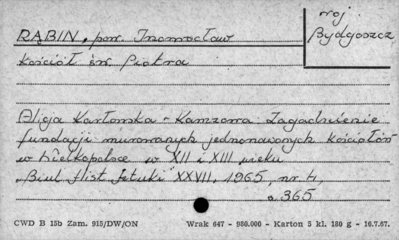 RĄBIN, pow. Inowrocław
woj.
Bydgoszcz
Kościół św. Piotra
Alicja Karłowska - Kamzowa: Zagadnienie
fundacji murowanych jednonawowych kościołów
w Wielkopolsce w XII i XIII wieku
"Biul. Hist. Sztuki" XXVII. 1965, nr. 4,
s. 365
CWD B 15b Zam. 915/DW/ON Wrak 647 - 980.000 - Karton 5 kl. 180 g - 16.7.67.